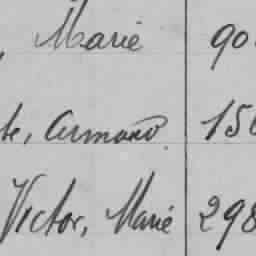 , Marie 90
te, Armand. 150
Victor, Marie 298